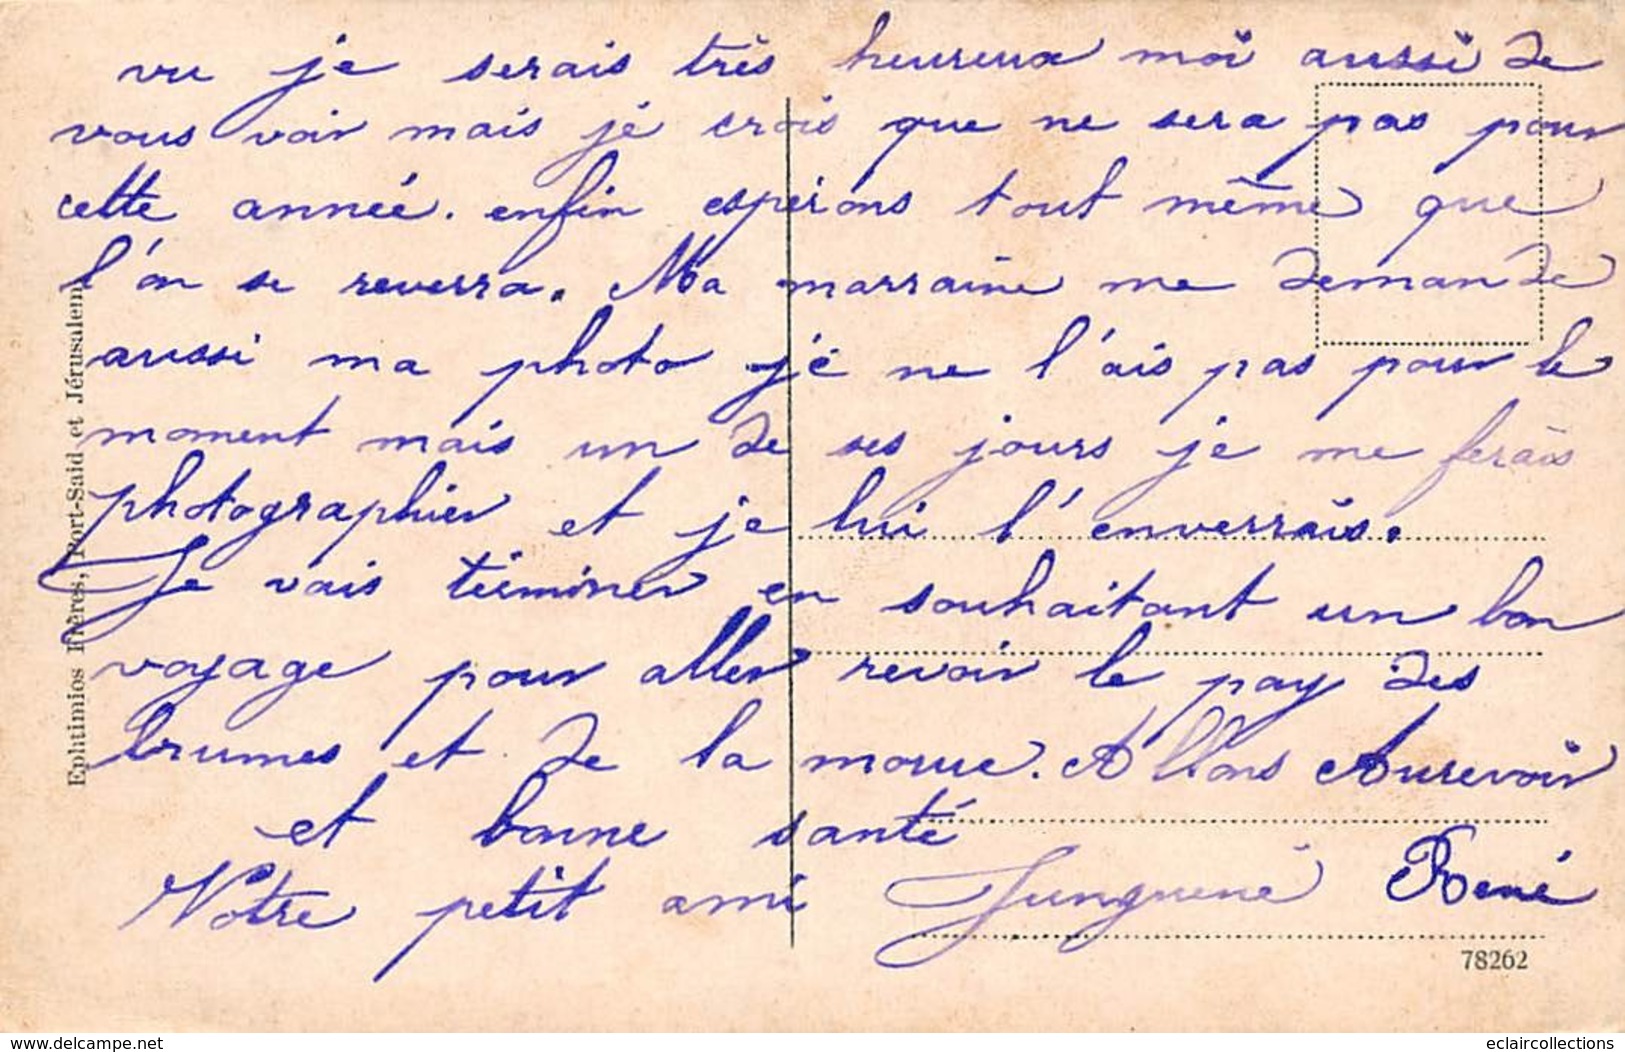 vu je serais très heureux moi aussi de
vous voir mais je crois que ne sera pas pour
cette année. enfin espérons tout même que
l'on se reverra. Ma marraine me demande
aussi ma photo je ne l'ais pas pour le
moment mais un de ses jours je me ferais
photographier et je lui l'enverrais.
Je vais términer en souhaitant un bon
voyage pour aller revoir le pay des
brumes et de la morue. Allons Aurevoir
et bonne santé
Notre petit ami René
Ephtimios Frères, Port-Said et Jérusalem
78262
www.delcampe.net
eclaircollections